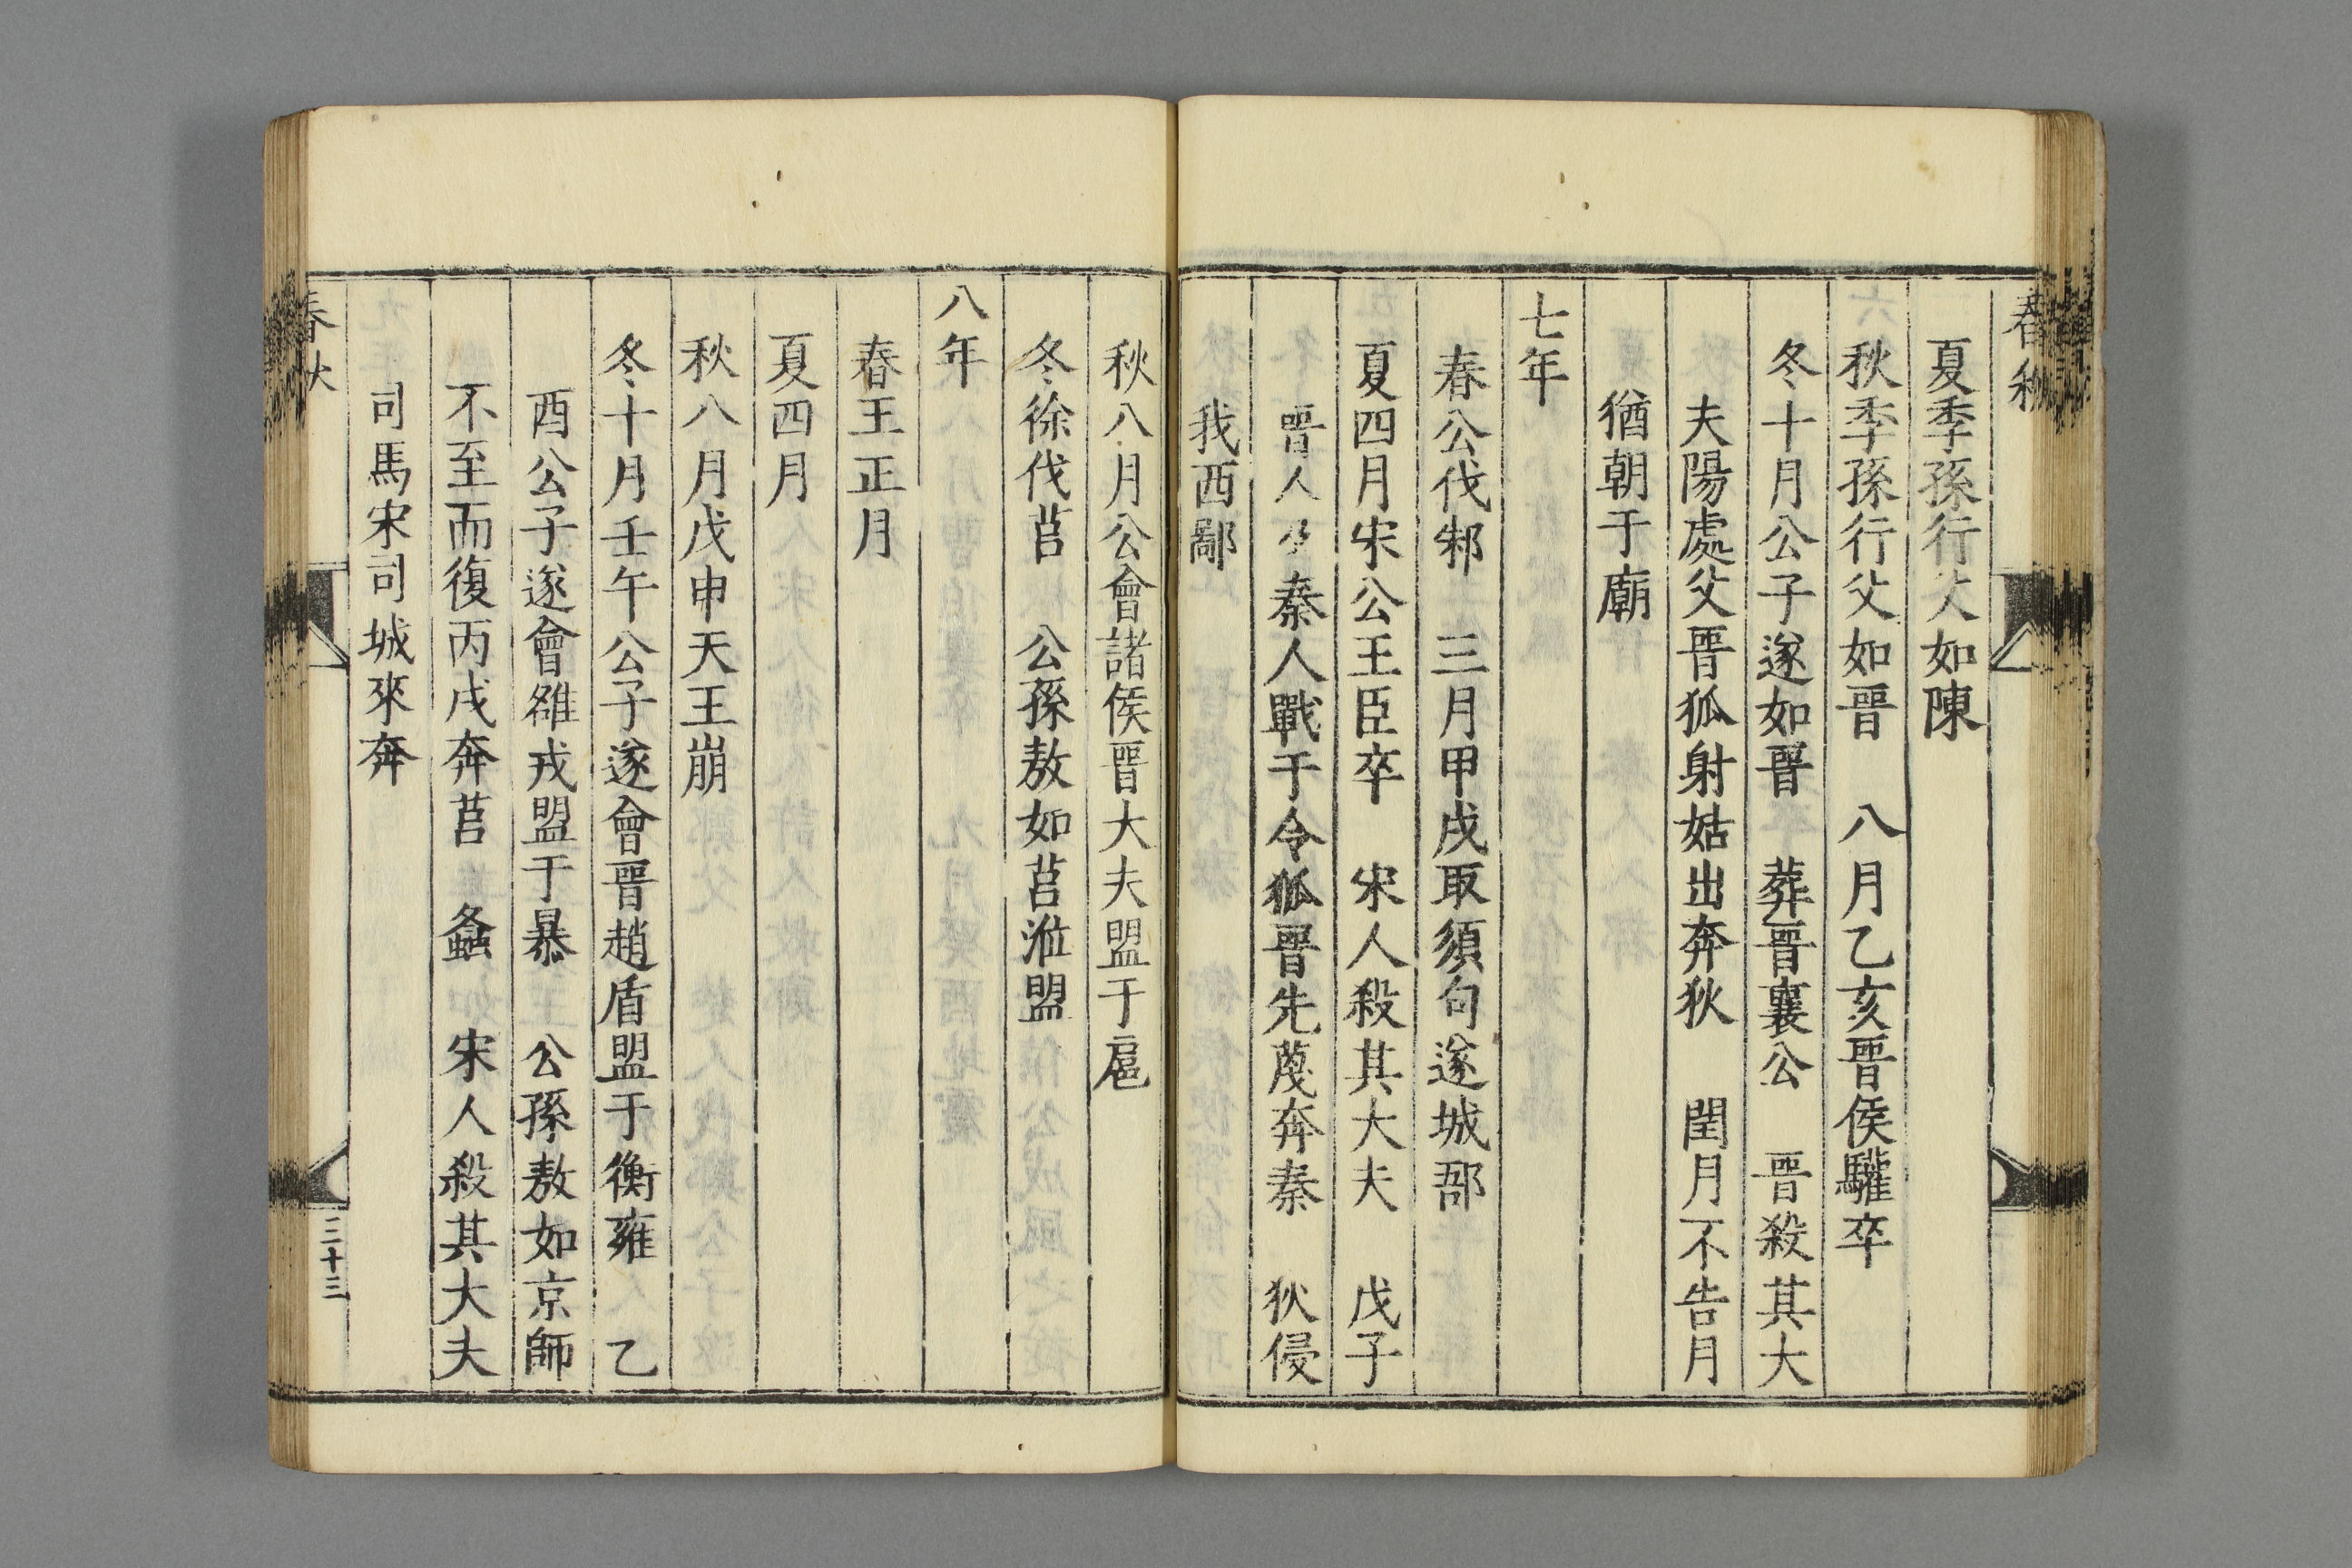 春秋
夏季孫行父如陳
秋季孫行父如晉　八月乙亥晉侯驩卒
冬十月公子遂如晉　葬晉襄公　晉殺其大
夫陽處父晉狐射姑出奔狄　閏月不告月
猶朝于廟
七年
春公伐邾　三月甲戌取須句遂城郚
夏四月宋公王臣卒　宋人殺其大夫　戊子
晉人及秦人戰于令狐晉先蔑奔秦　狄侵
我西鄙
秋八月公會諸侯晉大夫盟于扈
冬徐伐莒　公孫敖如莒涖盟
八年
春王正月
夏四月
秋八月戊申天王崩
冬十月壬午公子遂會晉趙盾盟于衡雍　乙
酉公子遂會雒戎盟于暴　公孫敖如京師
不至而復丙戌奔莒　螽　宋人殺其大夫
司馬宋司城來奔
春秋
二十三